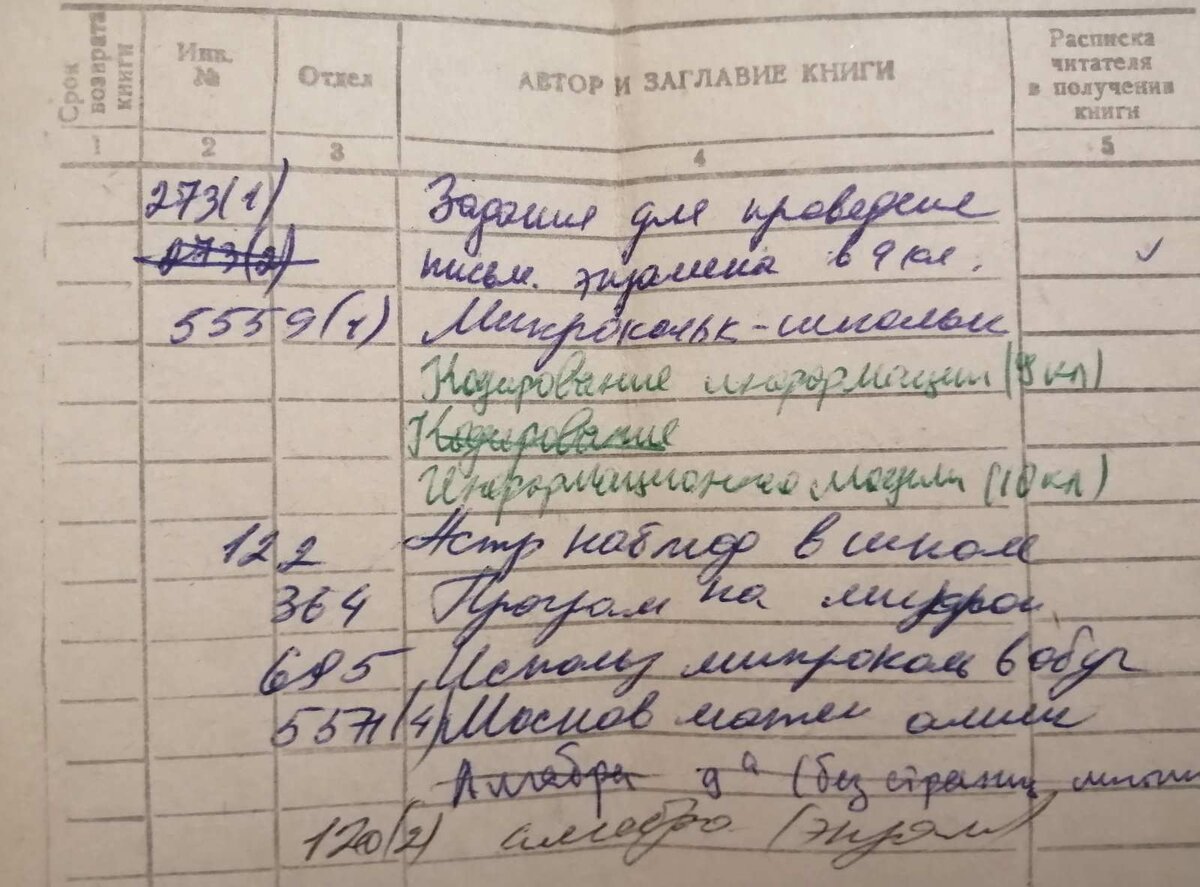 Срок возврата книги
Инв. №
Отдел
АВТОР И ЗАГЛАВИЕ КНИГИ
Расписка читателя в получении книги
1 2 3 4 5
273(1) Задания для проведение
273(2) письм. экзамена в 9 кл.
5559(1) Микрокальк-школьн
Кодирование информации (9 кл)
Кодирование
Информационного модули (10 кл)
122 Астр наблюд в школе
364 Програм на
685 Использ микрокаль в обуч
5571(4) Москов матем олимп
Алгебра 9 а (без страниц
120(2) алгебра (экзам)